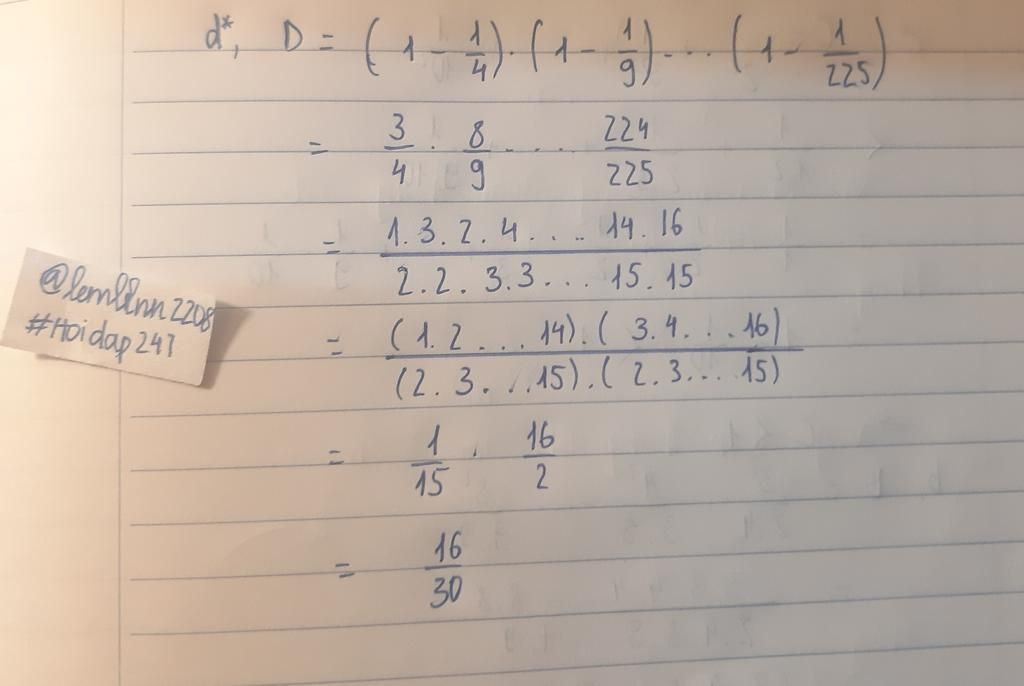 d*, D = (1 - 1/4).(1 - 1/9)...(1 - 1/225)
= 3/4 . 8/9 .... 224/225
= 1.3.2.4.... 14.16 / 2.2.3.3... 15.15
= (1.2...14).(3.4...16) / (2.3...15).(2.3...15)
= 1/15 . 16/2
= 16/30
#Hoidap247